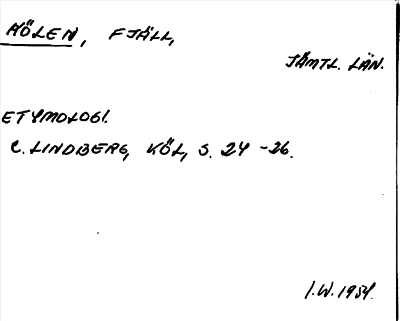 KÖLEN, FJÄLL,
JÄMTL. LÄN.
ETYMOLOGI.
C. LINDBERG, KÖL, S. 24-26.
I.W. 1954.